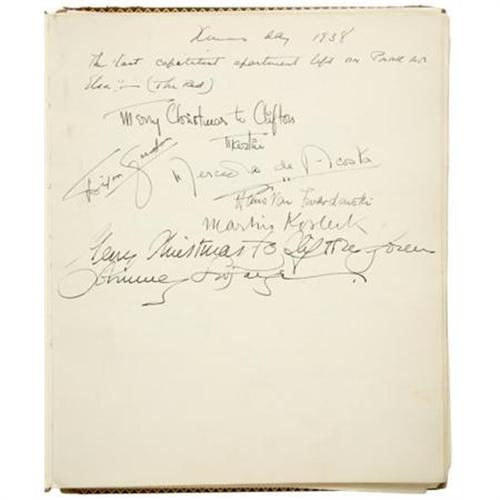 Xmas day 1938
The last capitalist apartment left on Park Ave
Elsa (The Red)
Merry Christmas to Clifton
Mercedes de Acosta
Hans von Twardowski
Martin Kosleck
Merry Christmas to Clifton from